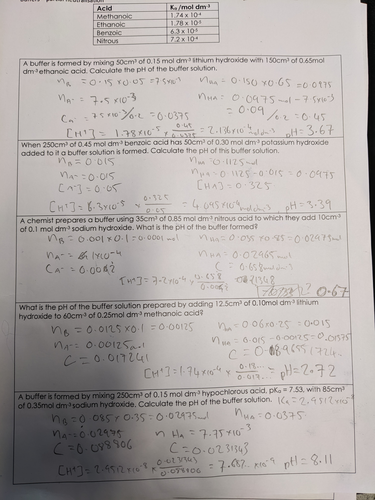 Acid Ka /mol dm-3
Methanoic 1.74 x 10-4
Ethanoic 1.78 x 10-5
Benzoic 6.3 x 10-5
Nitrous 7.2 x 10-4
A buffer is formed by mixing 50cm3 of 0.15 mol dm-3 lithium hydroxide with 150cm3 of 0.65mol
dm-3 ethanoic acid. Calculate the pH of the buffer solution.
nB = 0.15 x 0.05 = 7.5x10-3 nHA = 0.150 x 0.65 = 0.0975
nA- = 7.5x10-3 nHA = 0.0975mol - 7.5x10-3
= 0.09
CA- = 7.5x10-3/0.2 = 0.0375 /0.2 = 0.45
pH = 3.67
When 250cm3 of 0.45 mol dm-3 benzoic acid has 50cm3 of 0.30 mol dm-3 potassium hydroxide
added to it a buffer solution is formed. Calculate the pH of this buffer solution.
nB = 0.015 nHA = 0.1125mol
nA- = 0.015 nHA = 0.1125-0.015 = 0.0975
[A-] = 0.05 [HA] = 0.325
pH = 3.39
A chemist prepares a buffer using 35cm3 of 0.85 mol dm-3 nitrous acid to which they add 10cm3
of 0.1 mol dm-3 sodium hydroxide. What is the pH of the buffer formed?
nB = 0.001 x 0.1 = 0.0001mol nHA = 0.035 x 0.85 = 0.02975mol
nHA = 0.02965mol
C = 0.658mol
0.67
What is the pH of the buffer solution prepared by adding 12.5cm3 of 0.10mol dm-3 lithium
hydroxide to 60cm3 of 0.25mol dm-3 methanoic acid?
nB = 0.0125 x 0.1 = 0.00125 nHA = 0.06x0.25 = 0.015
nA- = 0.00125mol nHA = 0.015 - 0.00125 = 0.01375
C = 0.017241
pH = 2.72
A buffer is formed by mixing 250cm3 of 0.15 mol dm-3 hypochlorous acid, pKa = 7.53, with 85cm3
of 0.35mol dm-3 sodium hydroxide. Calculate the pH of the buffer solution. Ka = 2.9512x10-8
nB = 0.085 x 0.35 = 0.02975mol nHA = 0.0375
nA- = 0.02975 nHA = 7.75x10-3
C = 0.088806 C = 0.0231343
pH = 8.11